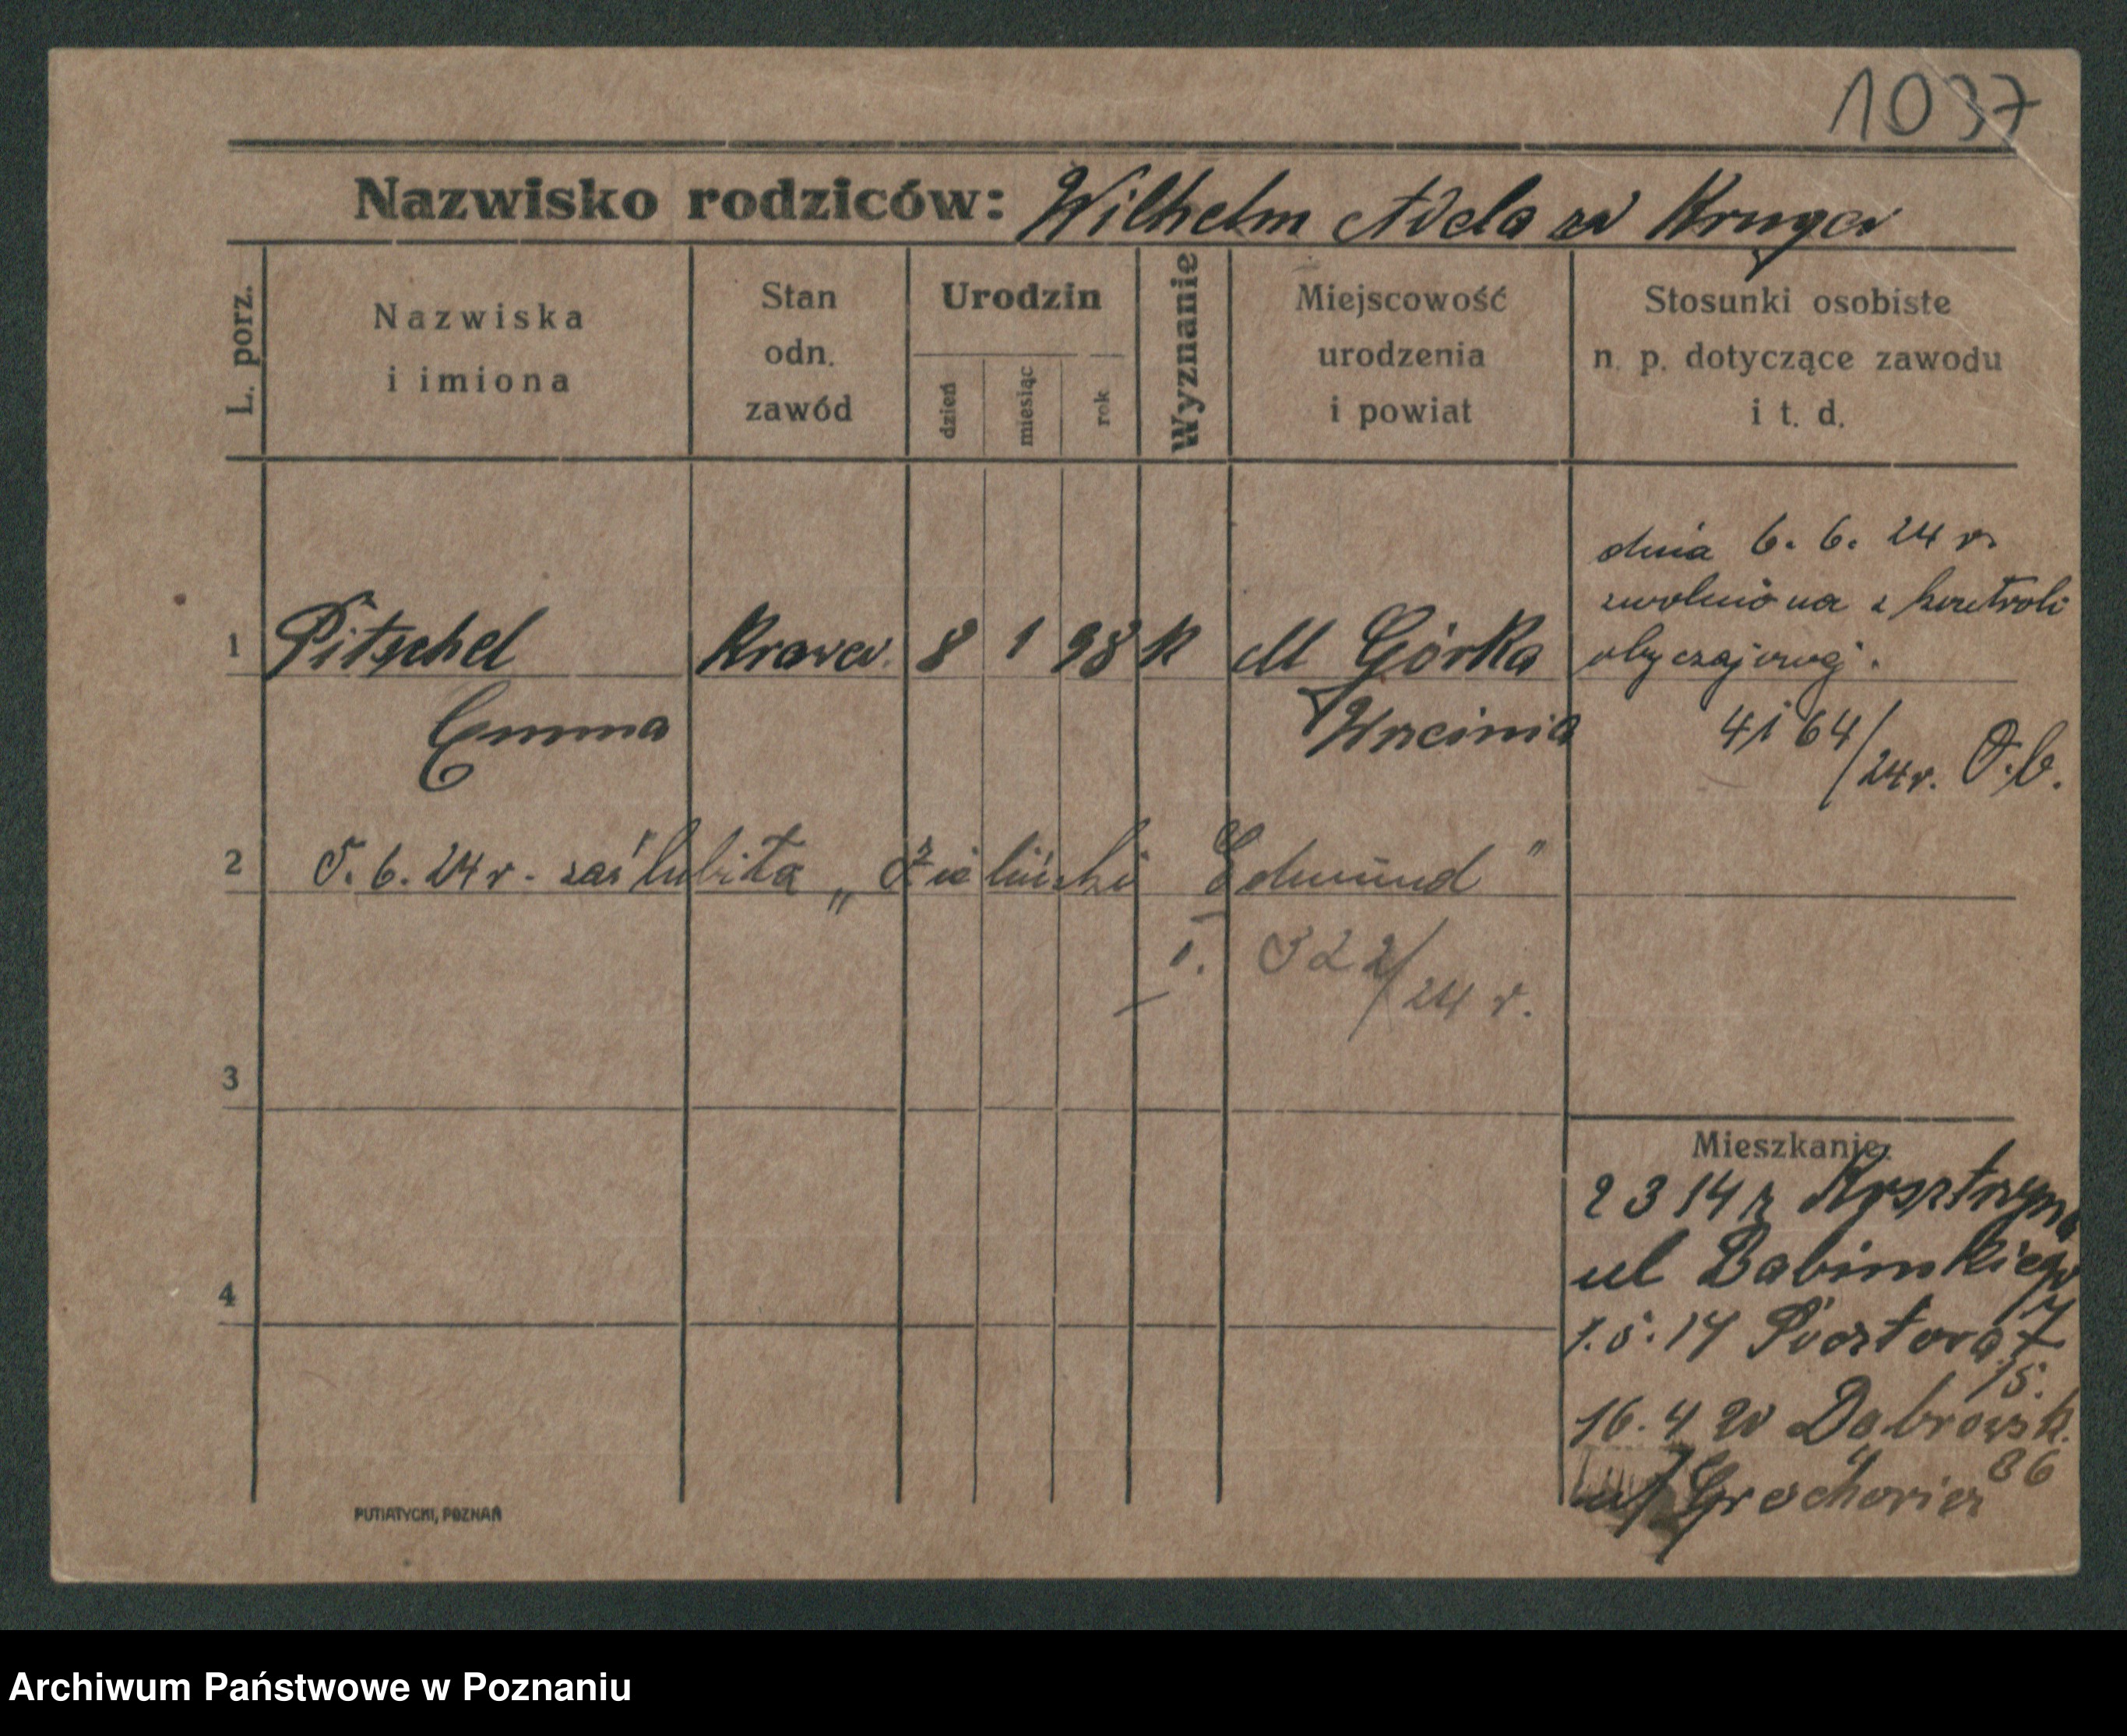 1037
Nazwisko rodziców: Wilhelm Adela zd Kruger
L. porz.
Nazwiska
i imiona
Stan
odn.
zawód
Urodzin
dzień
miesiąc
rok
Wyznanie
Miejscowość
urodzenia
i powiat
Stosunki osobiste
n. p. dotyczące zawodu
i t. d.
dnia 6. 6. 24 r.
zwolniona z kontroli
obyczajowej.
1 Pitschel Krawcz. 8 1 98 K M Górka
Emma
4164/24r. O.b.
2 5. 6. 24 r. zaślubiła „Zieliński Edmund"
I. 522/24 r.
3
4
Mieszkanie:
2 3 14 z
ul Babinskiego
7
1.5.14
15.
16. 4 20 Dąbrowsk.
86
PUTIATYCKI, POZNAŃ
Archiwum Państwowe w Poznaniu